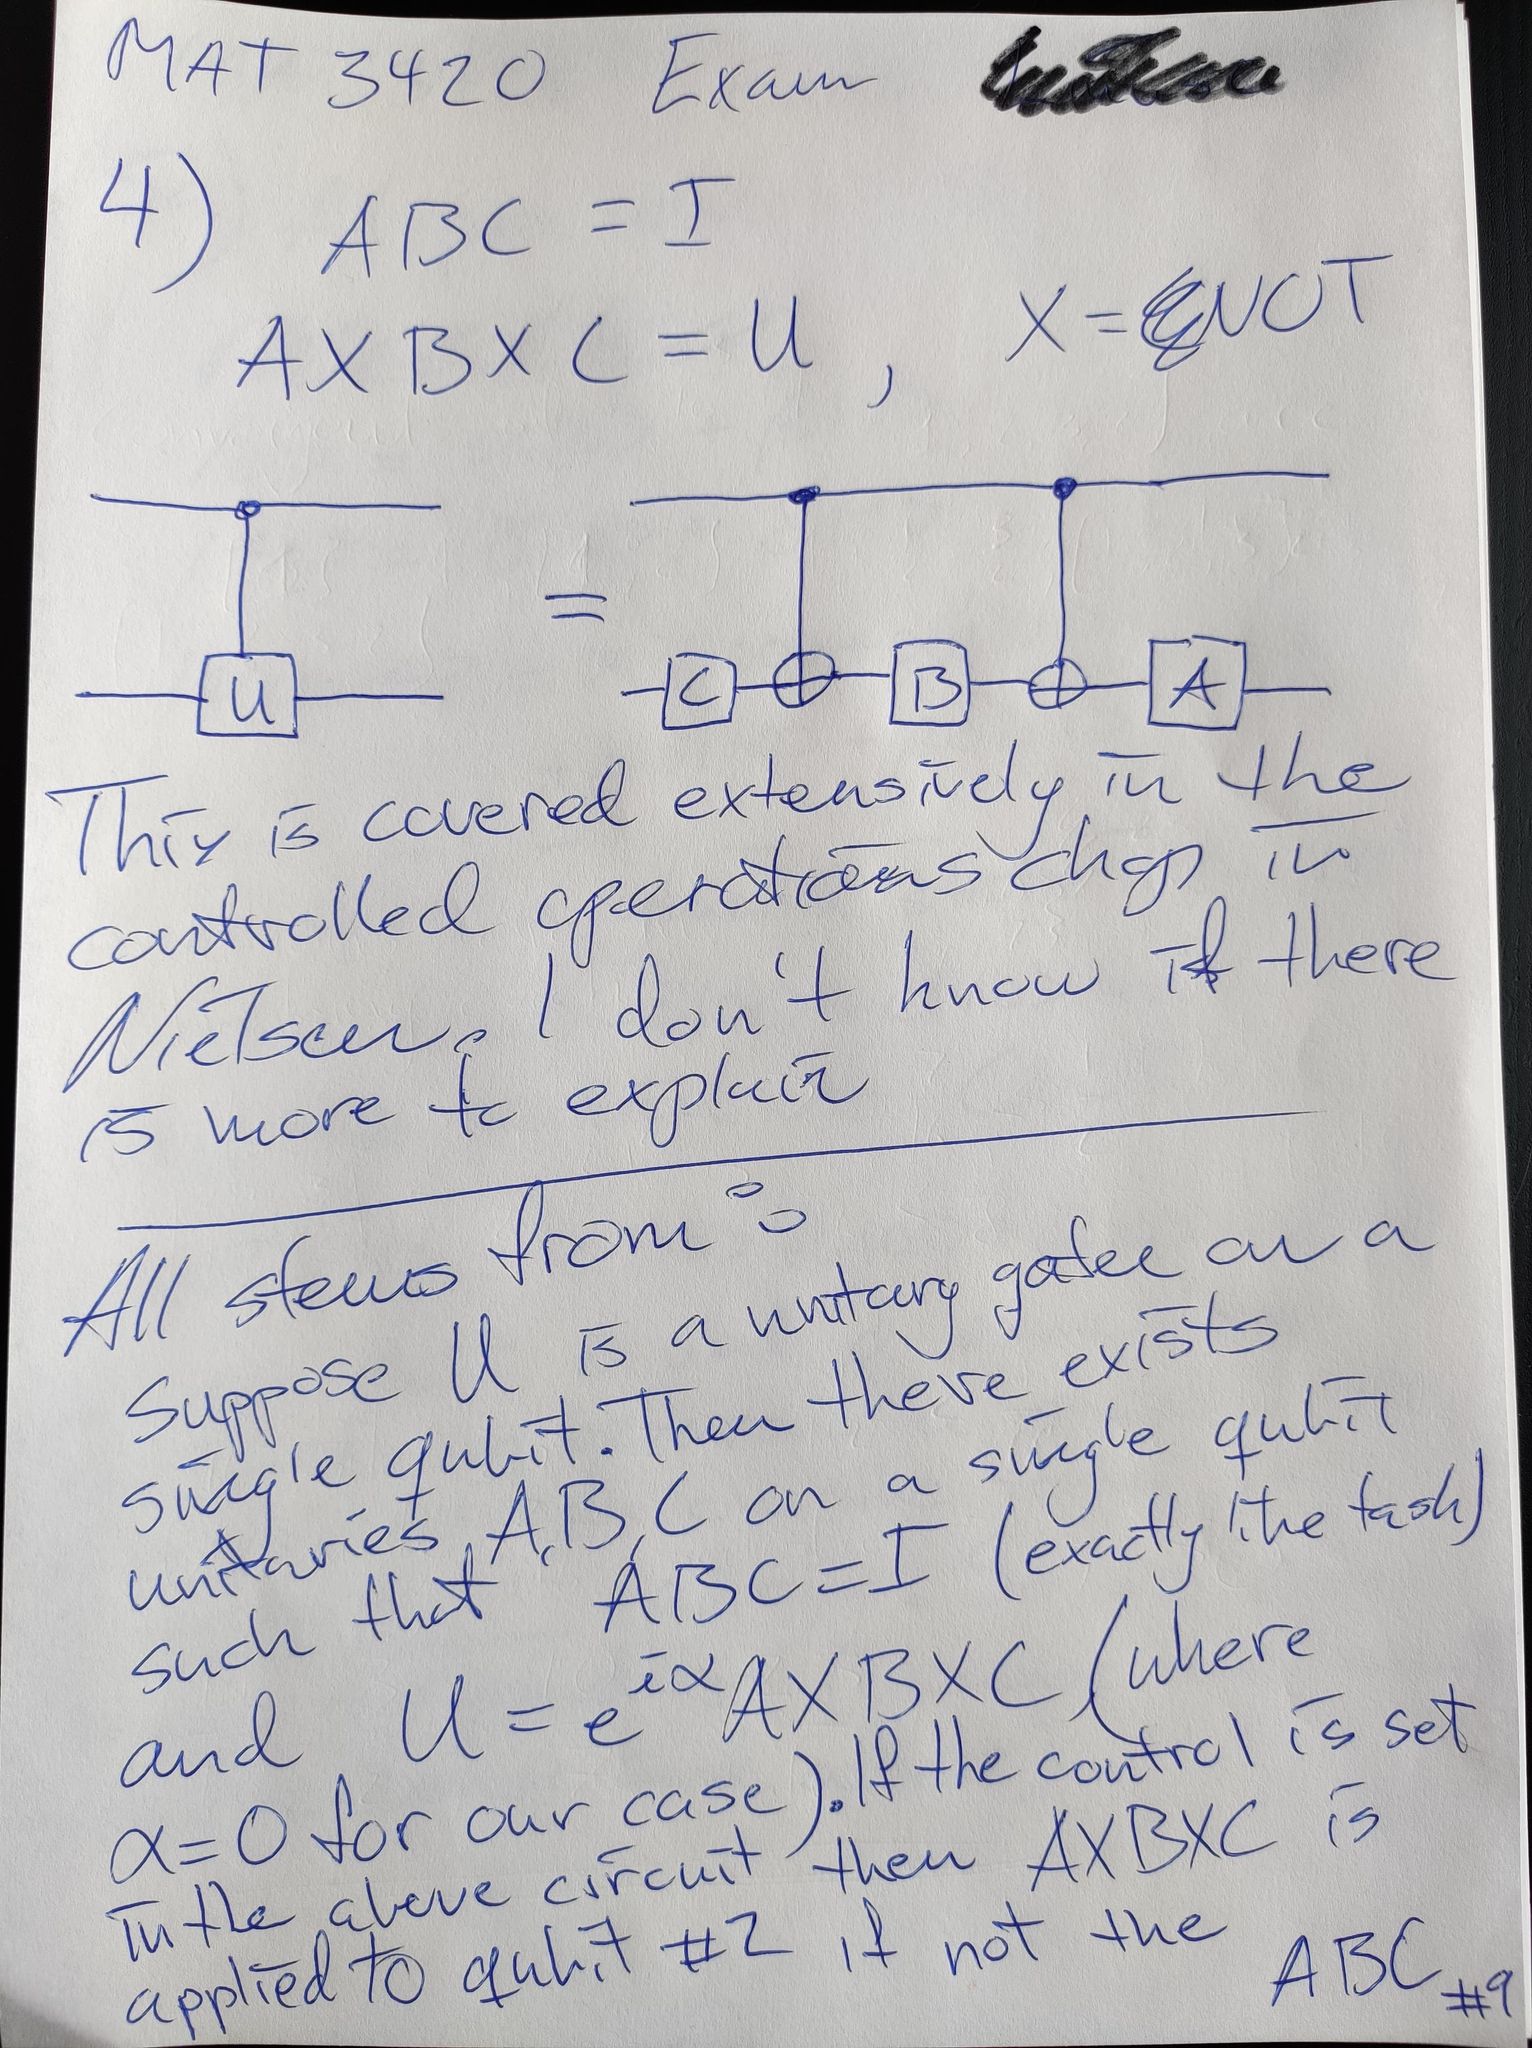 MAT 3420 Exam
4) ABC = I
AXBXC = U , X = NOT
=
U
C B A
This is covered extensively in the
controlled operations chap in
Nielsen. I don't know if there
is more to explain
All stems from:
Suppose U is a unitary gate on a
single qubit. Then there exists
unitaries A,B,C on a single qubit
such that ABC = I (exactly the task)
and U = e^{iα}AXBXC (where
α=0 for our case). If the control is set
in the above circuit then AXBXC is
applied to qubit #2 if not the ABC
#9